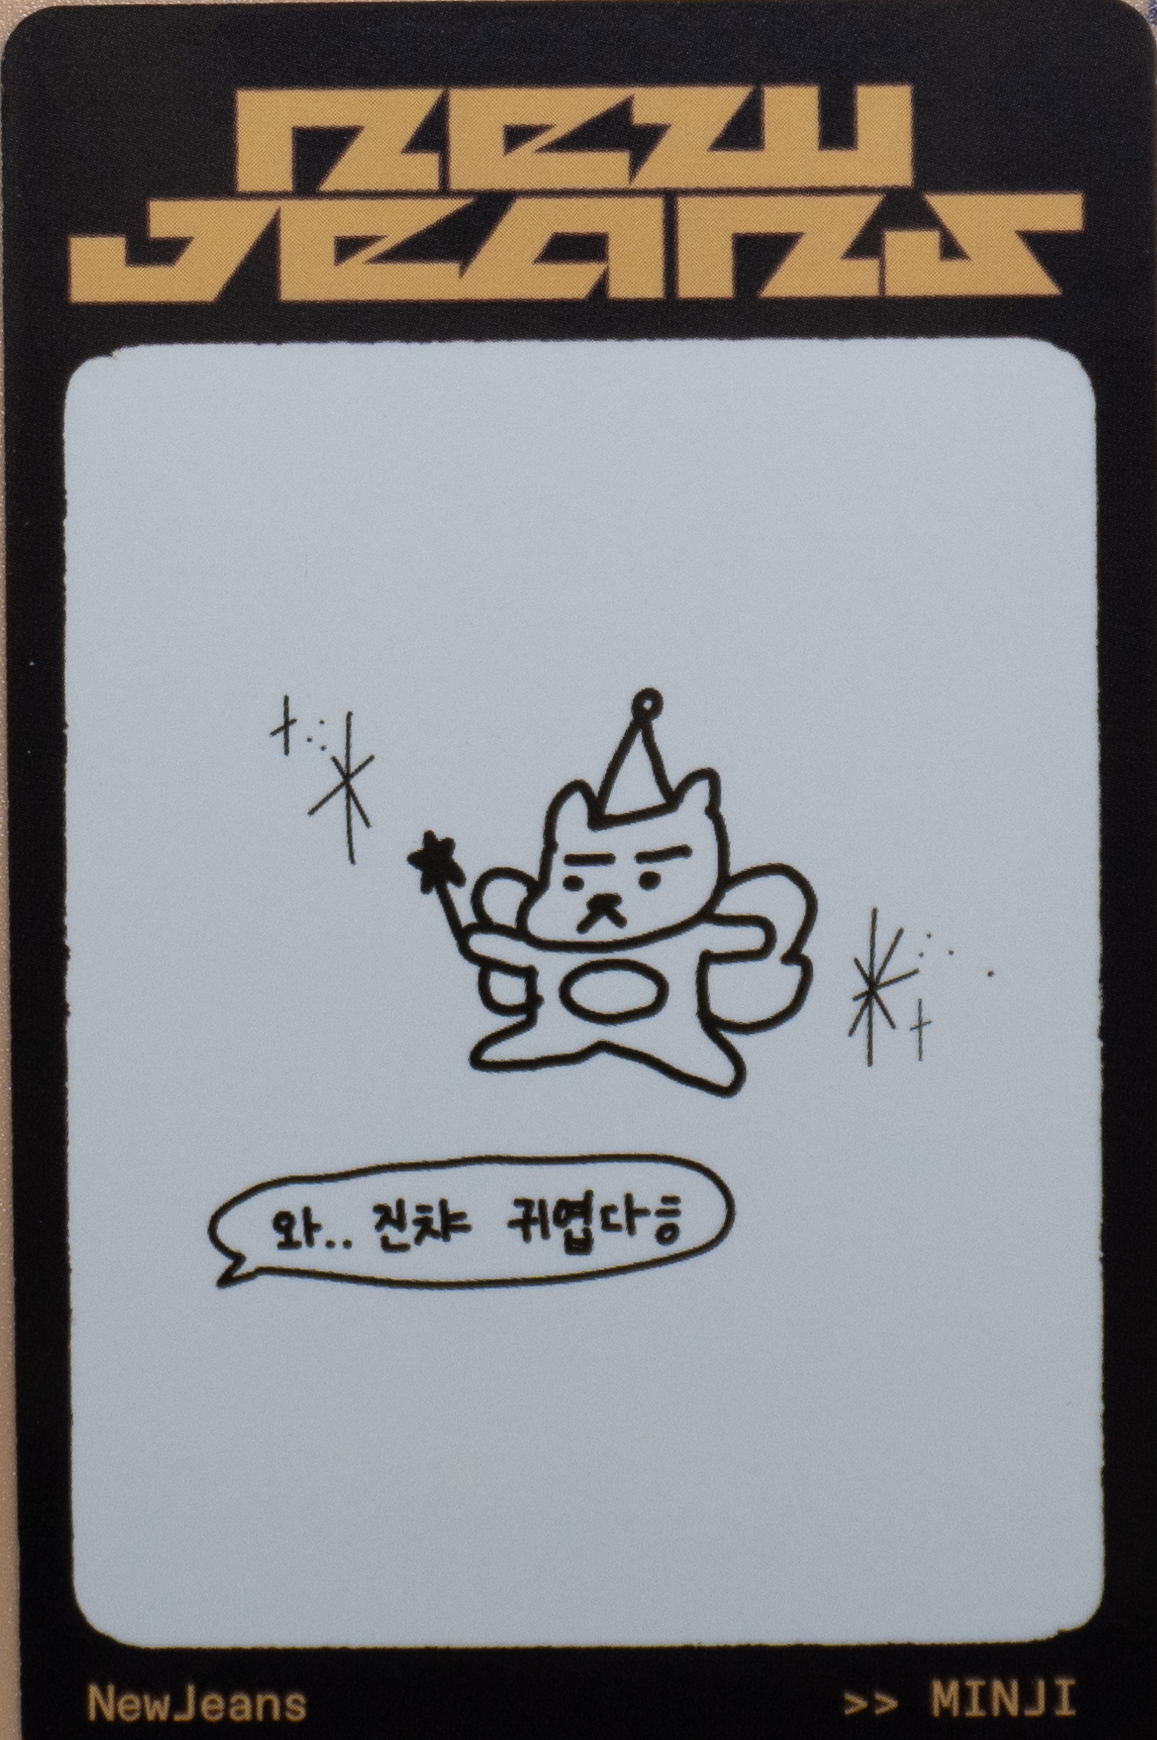 new
jeans
와.. 진챠 귀엽다흥
NewJeans >> MINJI